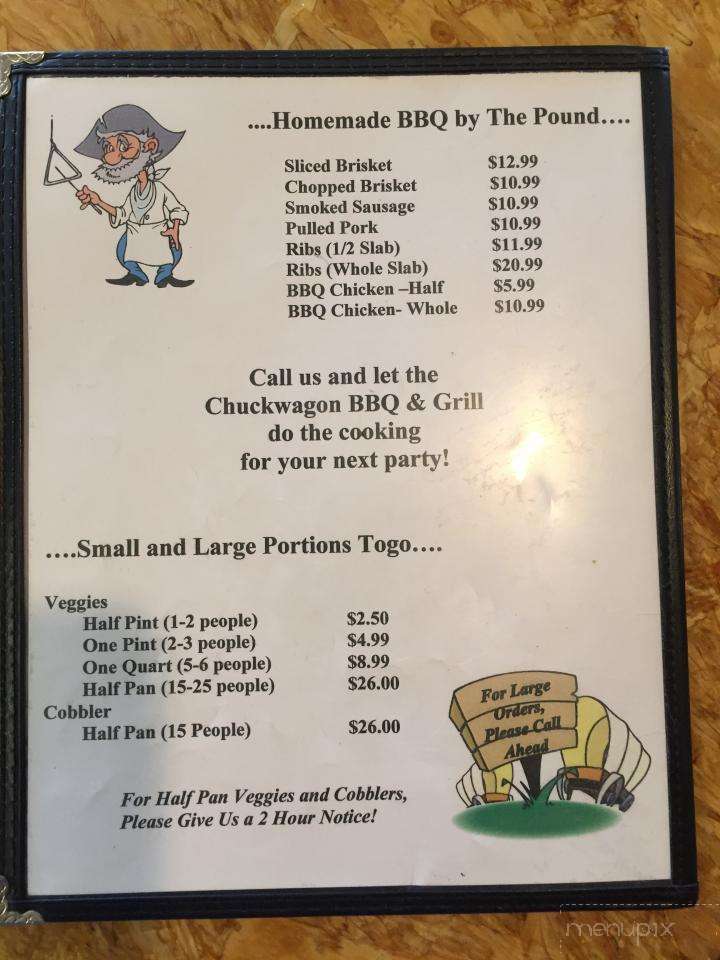 ....Homemade BBQ by The Pound....
Sliced Brisket $12.99
Chopped Brisket $10.99
Smoked Sausage $10.99
Pulled Pork $10.99
Ribs (1/2 Slab) $11.99
Ribs (Whole Slab) $20.99
BBQ Chicken –Half $5.99
BBQ Chicken- Whole $10.99
Call us and let the
Chuckwagon BBQ & Grill
do the cooking
for your next party!
....Small and Large Portions Togo....
Veggies
Half Pint (1-2 people) $2.50
One Pint (2-3 people) $4.99
One Quart (5-6 people) $8.99
Half Pan (15-25 people) $26.00
Cobbler
Half Pan (15 People) $26.00
For Large
Orders,
Please Call
Ahead
For Half Pan Veggies and Cobblers,
Please Give Us a 2 Hour Notice!
menupix